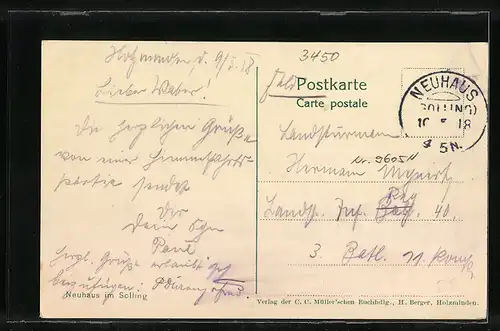 Holzminden, d. 9/5. 18
Lieber Vater!
Die herzlichen Grüße
von einer Himmelfahrts-
partie sendet
Dir
Dein Sohn
Paul
Herzl. Grüße erlaubt sich
beizufügen:
Neuhaus im Solling
3450
Feld Postkarte
Carte postale
NEUHAUS
(SOLLING)
10 5 18
5N.
Landsturmmann
Nr. 9605
Hermann
Landst. Inf. Reg. 40.
3. Batl. 11. Komp.
Verlag der C. C. Müller'schen Buchhdlg., H. Berger, Holzminden.